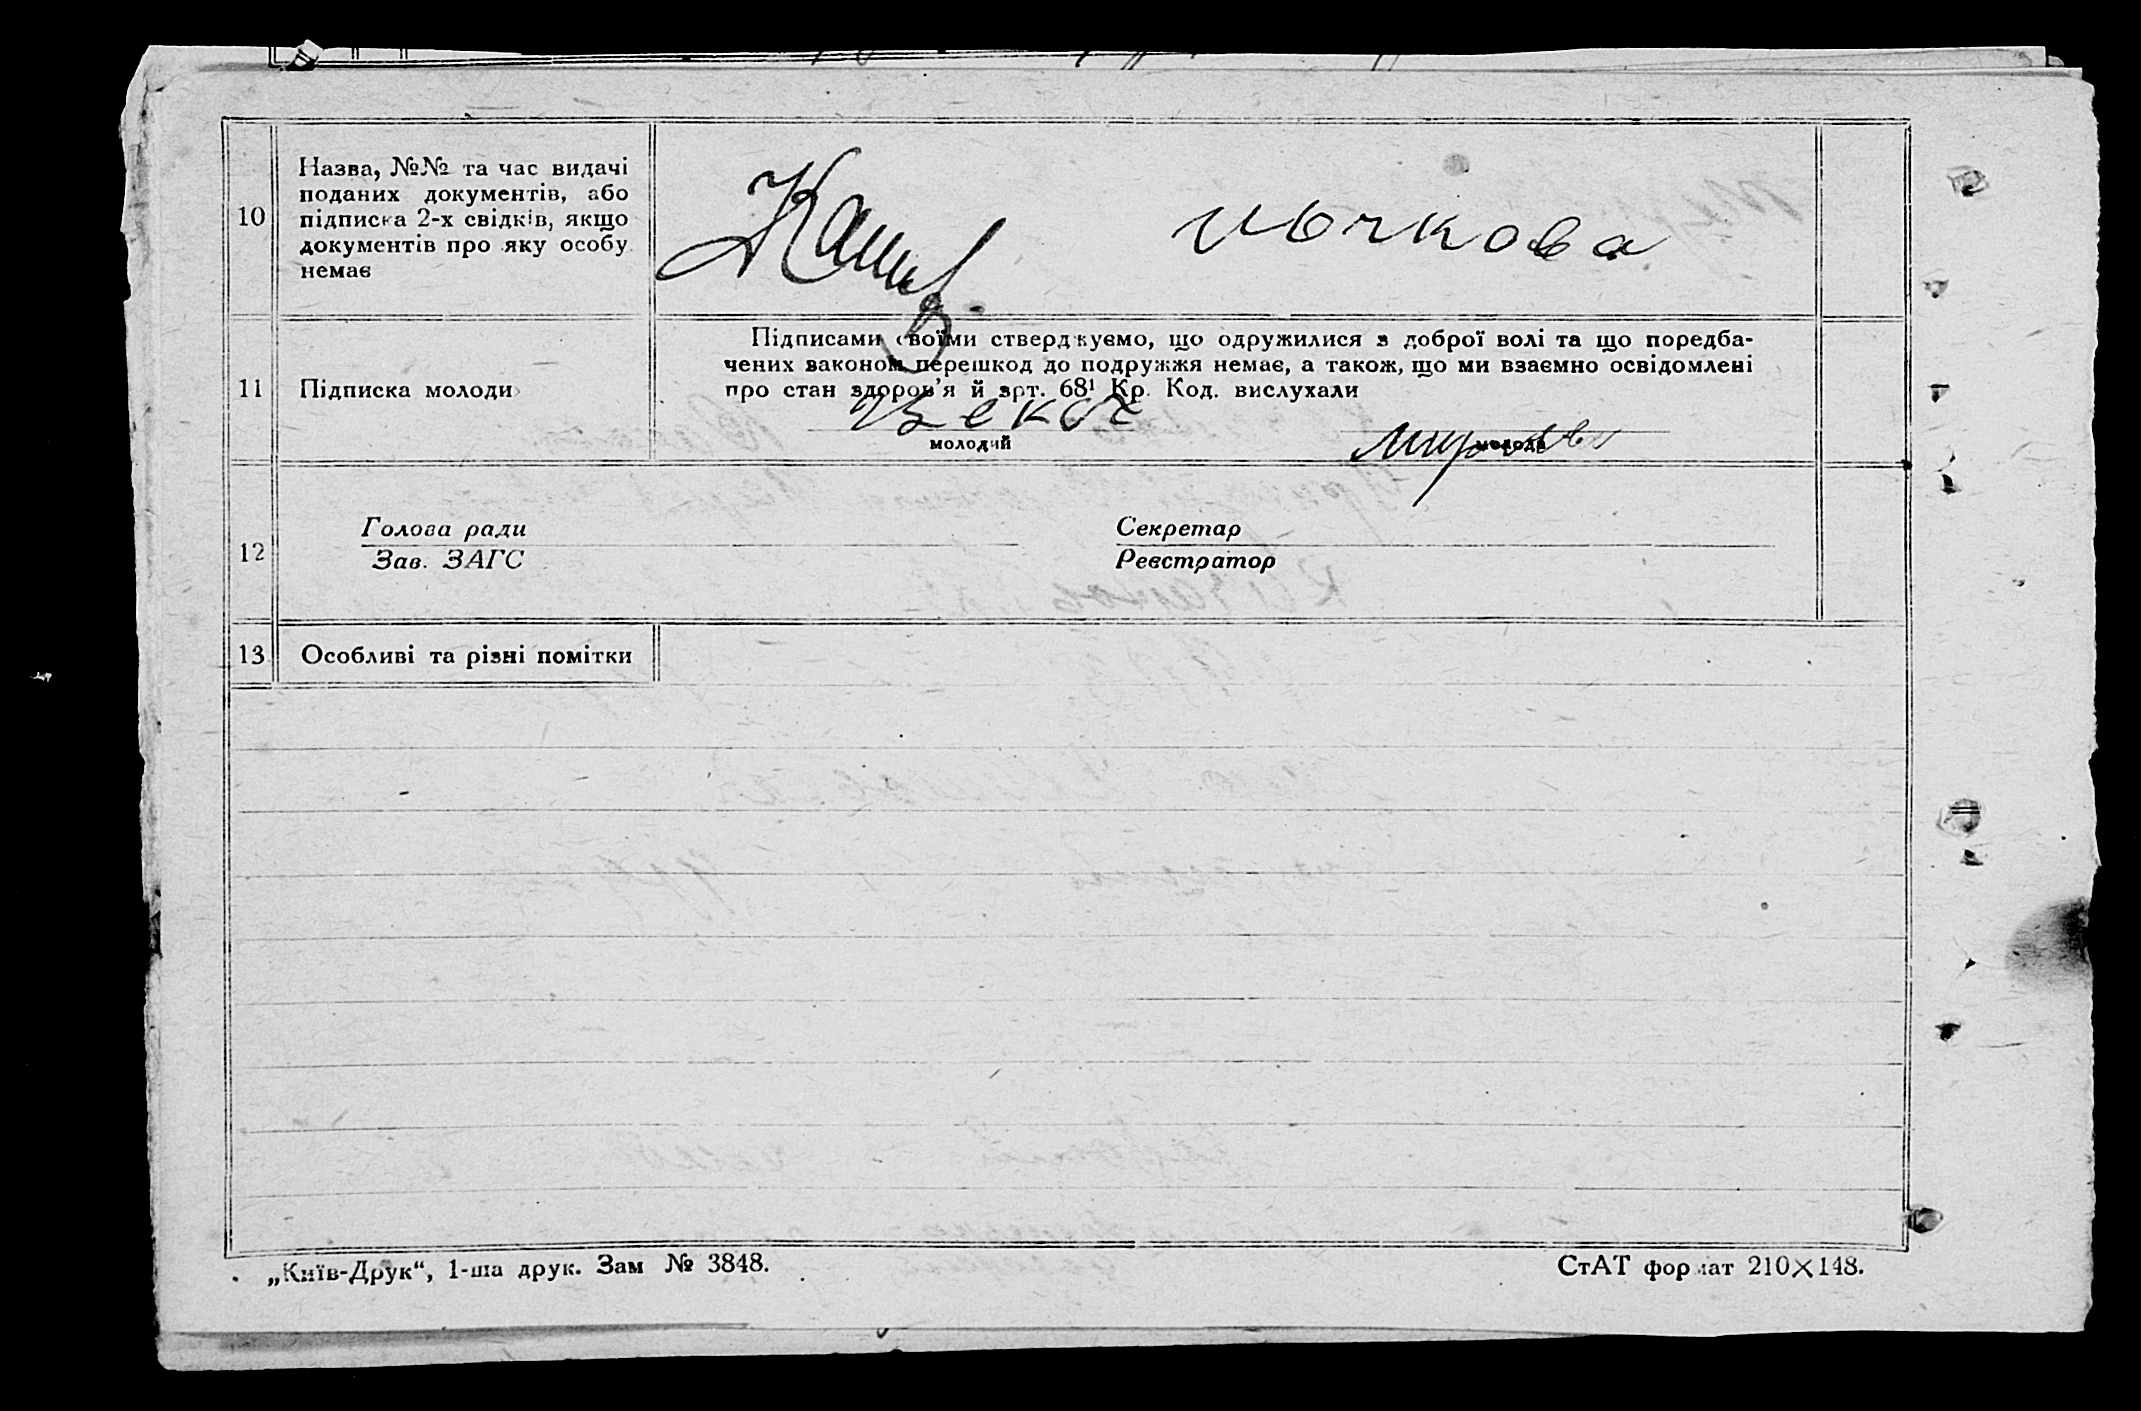 10
Назва, №№ та час видачі
поданих документів, або
підписка 2-х свідків, якщо
документів про яку особу
немає
11
Підписка молоди
Підписами своїми стверджуємо, що одружилися з доброї волі та що поредба-
чених законом перешкод до подружжя немає, а також, що ми взаємно освідомлені
про стан здоров'я й арт. 68¹ Кр. Код. вислухали
молодий
молода
12
Голова ради
Зав. ЗАГС
Секретар
Реєстратор
13
Особливі та різні помітки
„Київ-Друк“, 1-ша друк. Зам № 3848.
СтАТ формат 210×148.